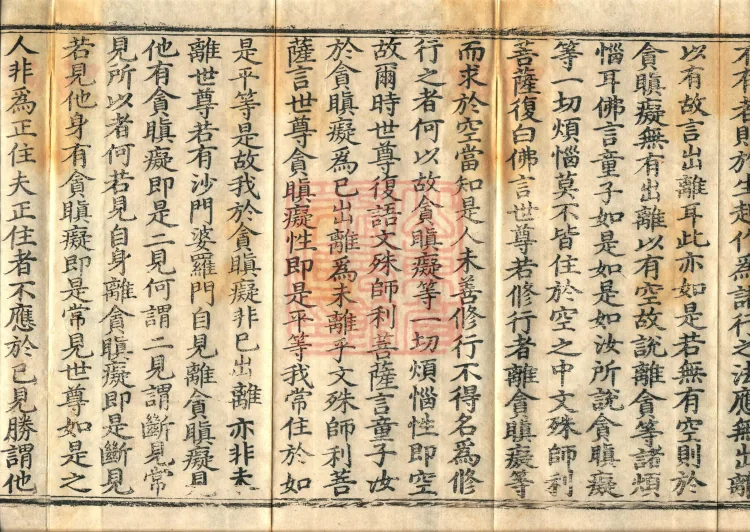 有有者則於生起作爲諸行之法應無出離
以有故言出離耳此亦如是若無有空則於
貪瞋癡無有出離以有空故說離貪等諸煩
惱耳佛言童子如是如是如汝所說貪瞋癡
等一切煩惱莫不皆住於空之中文殊師利
菩薩復白佛言世尊若修行者離貪瞋癡等
而求於空當知是人未善修行不得名爲修
行之者何以故貪瞋癡等一切煩惱性即空
故爾時世尊復語文殊師利菩薩言童子汝
於貪瞋癡爲已出離爲未離乎文殊師利菩
薩言世尊貪瞋癡性即是平等我常住於如
是平等是故我於貪瞋癡非已出離亦非未
離世尊若有沙門婆羅門自見離貪瞋癡見
他有貪瞋癡即是二見何謂二見謂斷見常
見所以者何若見自身離貪瞋癡即是斷見
若見他身有貪瞋癡即是常見世尊如是之
人非爲正住夫正住者不應於己見勝謂他